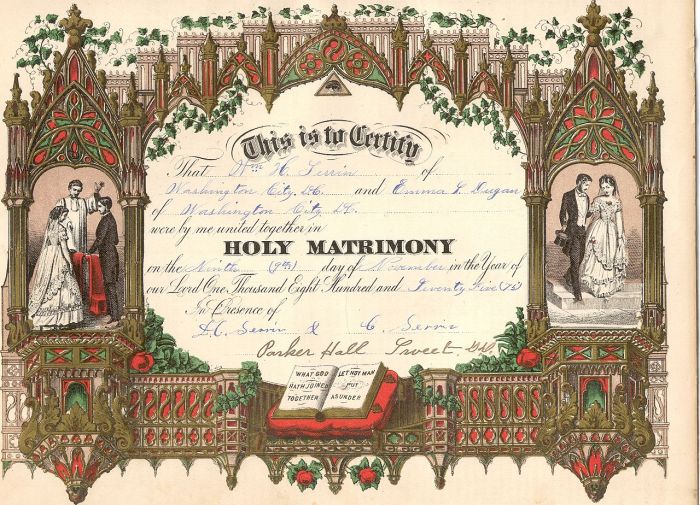 This is to Certify
That Wm H. Serrin of
Washington City D.C. and Emma S. Dugan
of Washington City D.C.
were by me united together in
HOLY MATRIMONY
on the Ninth (9th) day of November in the Year of
our Lord One Thousand Eight Hundred and Seventy Five (75)
In Presence of
D.C. Serrin & C. Serrin
Parker Hall Sweet
WHAT GOD HATH JOINED TOGETHER
LET NOT MAN PUT ASUNDER